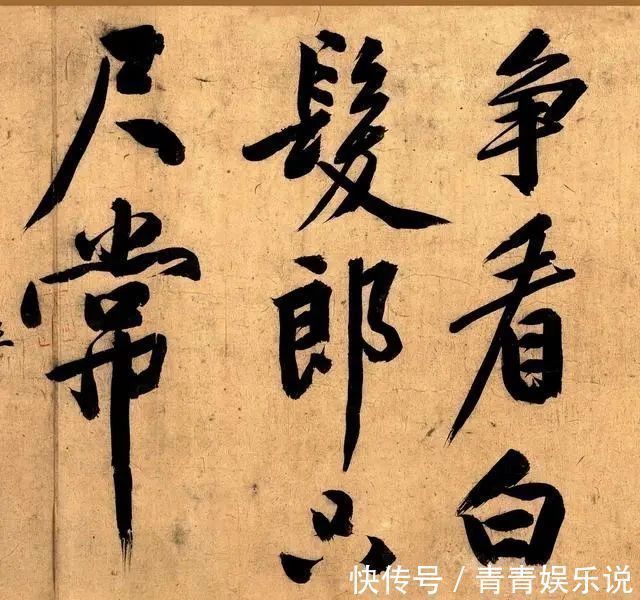 争看白
髮郎只
尺常
快传号 / 青青娱乐说